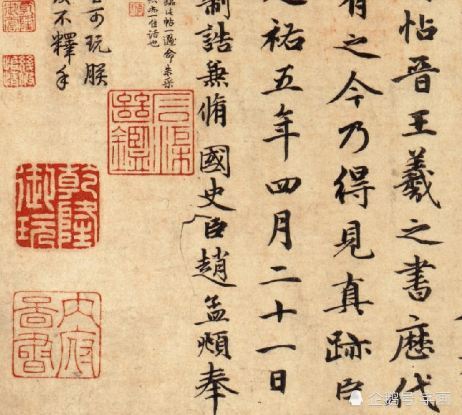 帖晉王羲之書歷代
有之今乃得見真跡臣
祐五年四月二十一日
制誥兼脩國史臣趙孟頫奉
可玩朕
不釋手
乾隆御玩
內府圖書
企鹅号